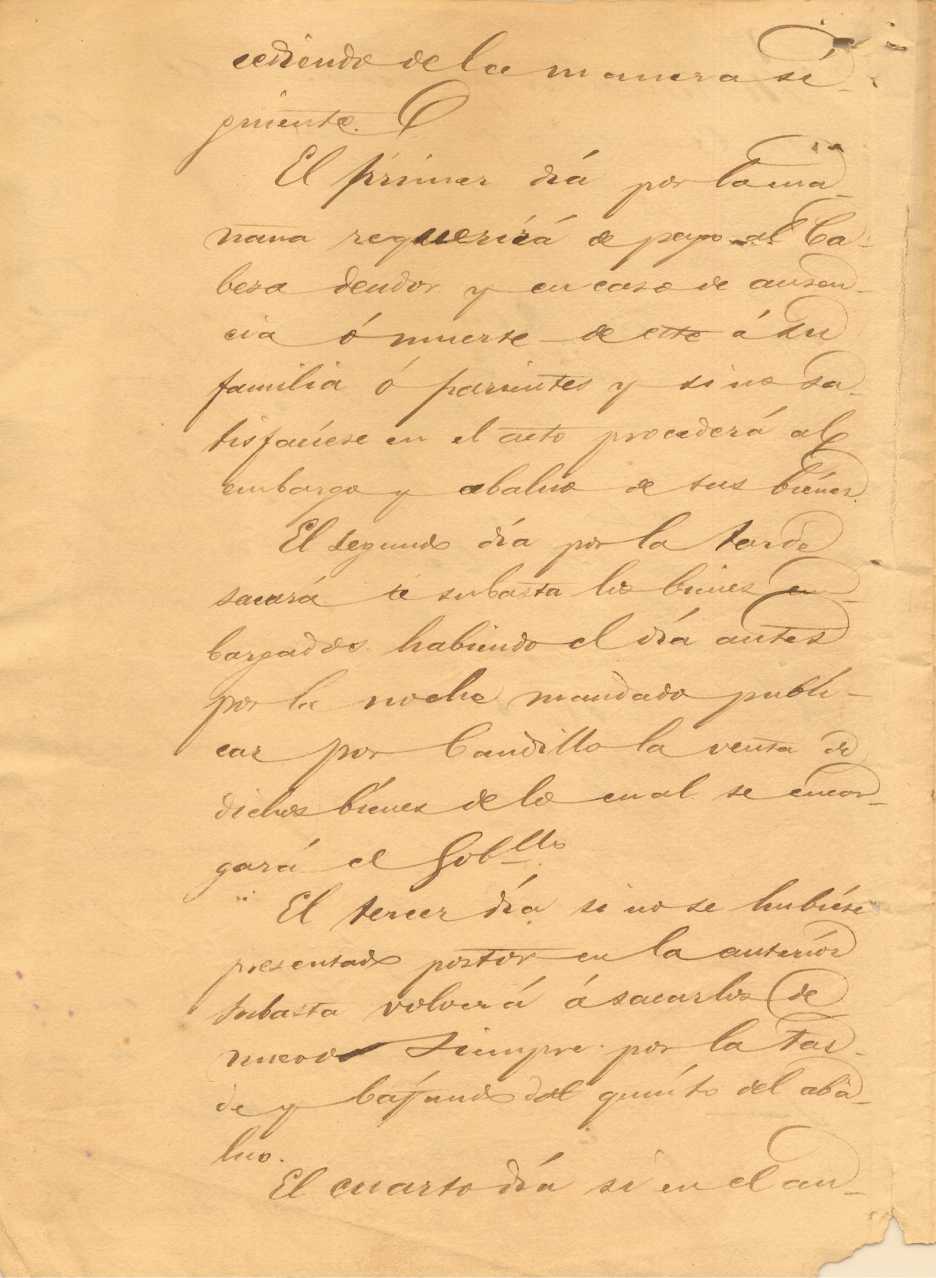 cediendo de la manera si-
guiente.
El primer día por la ma-
nana requerirá de pago al Ca-
beza deudor y en caso de ausen-
cia ó muerte de este á su
familia ó parientes y si no sa-
tisfaciese en el acto procederá al
embargo y abaluo de sus bienes.
El segundo día por la tarde
sacará á subasta los bienes em-
bargados habiendo el día antes
por la noche mandado publi-
car por bandillo la venta de
dichos bienes de lo cual se encar-
gará el Gob.llo
El tercer día si no se hubiese
presentado postor en la anterior
subasta volverá á sacarlos de
nuevo siempre por la tar-
de y bajando del quinto del aba-
luo.
El cuarto día si en el an-